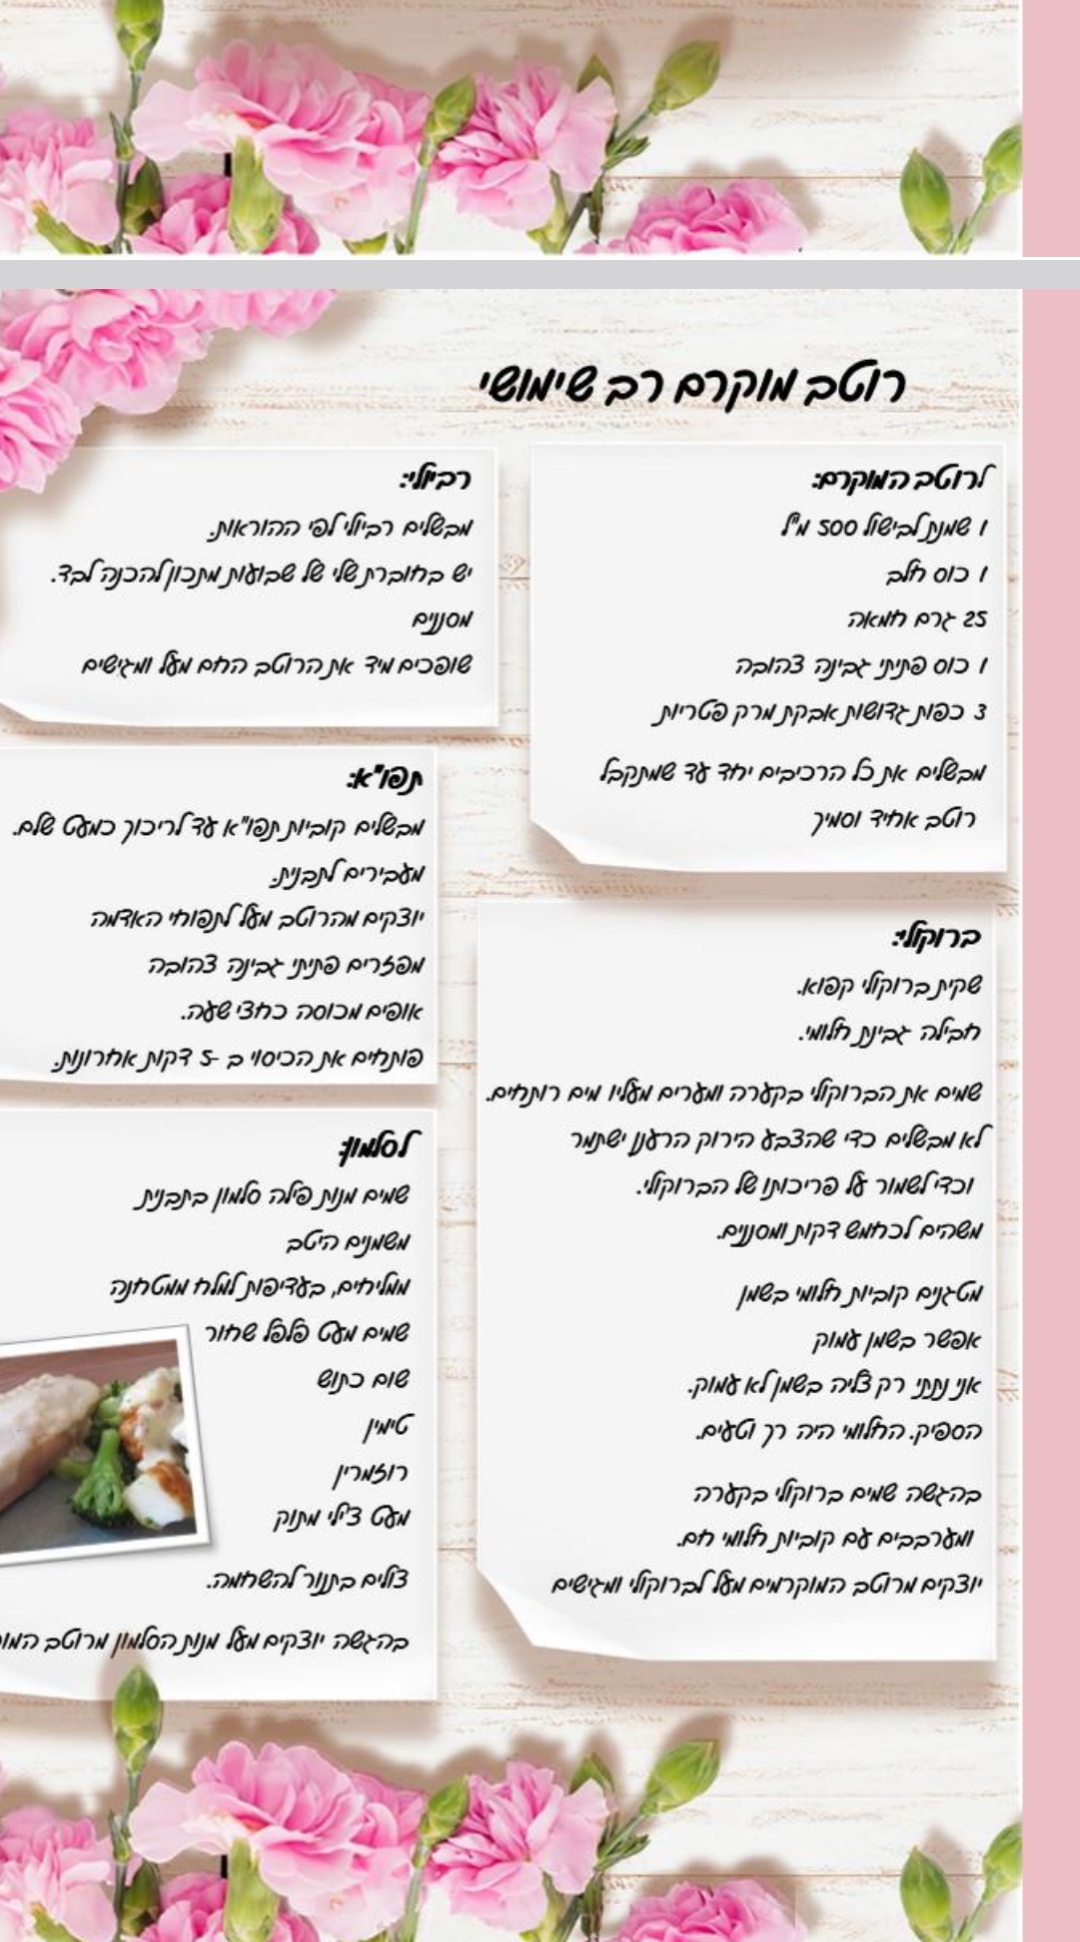 רוטב מוקרם רב שימושי
לרוטב המוקרם:
1 שמנת לבישול 500 מ"ל
1 כוס חלב
25 גרם חמאה
1 כוס פתיתי גבינה צהובה
3 כפות גדושות אבקת מרק פטריות
מבשלים את כל הרכיבים יחד עד שמתקבל
רוטב אחיד וסמיך
רביולי:
מבשלים רביולי לפי ההוראות.
יש בחוברת שלי של שבועות מתכון להכנה לבד.
מסננים
שופכים מיד את הרוטב החם מעל ומגישים
תפו"א:
מבשלים קוביות תפו"א עד לריכוך כמעט שלם.
מעבירים לתבנית.
יוצקים מהרוטב מעל לתפוחי האדמה
מפזרים פתיתי גבינה צהובה
אופים מכוסה כחצי שעה.
פותחים את הכיסוי ב -5 דקות אחרונות.
ברוקולי:
שקית ברוקולי קפוא.
חבילה גבינת חלומי.
שמים את הברוקולי בקערה ומערים מעליו מים רותחים.
לא מבשלים כדי שהצבע הירוק הרענן ישתמר
וכדי לשמור על פריכותו של הברוקולי.
משהים לכחמש דקות ומסננים.
מטגנים קוביות חלומי בשמן
אפשר בשמן עמוק
אני נתתי רק צליה בשמן לא עמוק.
הספיק. החלומי היה רך וטעים.
בהגשה שמים ברוקולי בקערה
ומערבבים עם קוביות חלומי חם.
יוצקים מרוטב המוקרמים מעל לברוקולי ומגישים
לסלמון:
שמים מנות פילה סלמון בתבנית
משמנים היטב
ממליחים, בעדיפות למלח ממטחנה
שמים מעט פלפל שחור
שום כתוש
טימין
רוזמרין
מעט צ'ילי מתוק
צולים בתנור להשחמה.
בהגשה יוצקים מעל מנות הסלמון מרוטב